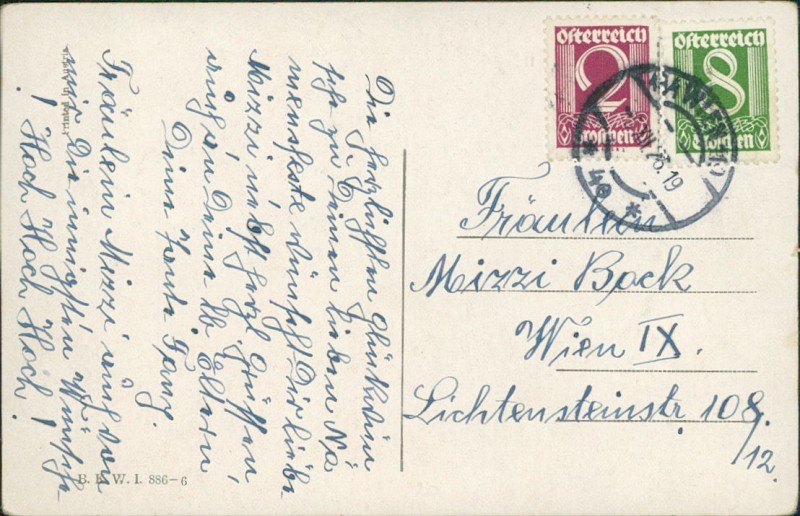 Die herzlichsten Glückwün
sche zu Deinem lieben Na
mensfeste wünscht Dir liebe
Mizzi nebst herzl. Grüßen
auch an Deine lb. Eltern
Deine
Fräulein Mizzi auch von
mir die innigsten Wünsche
! Hoch Hoch Hoch !
Printed in Austria
B. K. W. I. 886-6
Österreich
2
Groschen
Österreich
8
Groschen
WIEN
* 4e *
Fräulein
Mizzi Bock
Wien IX.
Lichtensteinstr 108/
12.